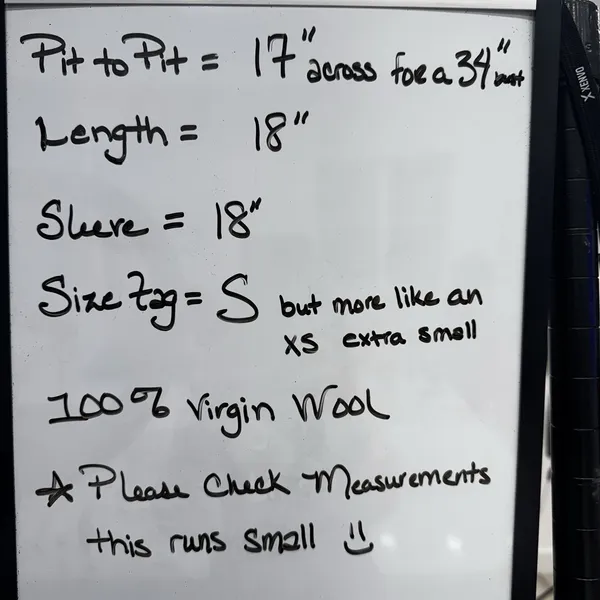 Pit to Pit = 17" across for a 34" bust
Length = 18"
Sleeve = 18"
Size Tag = S but more like an
XS extra small
100% Virgin Wool
☆ Please Check Measurements
this runs small :)
XENVO